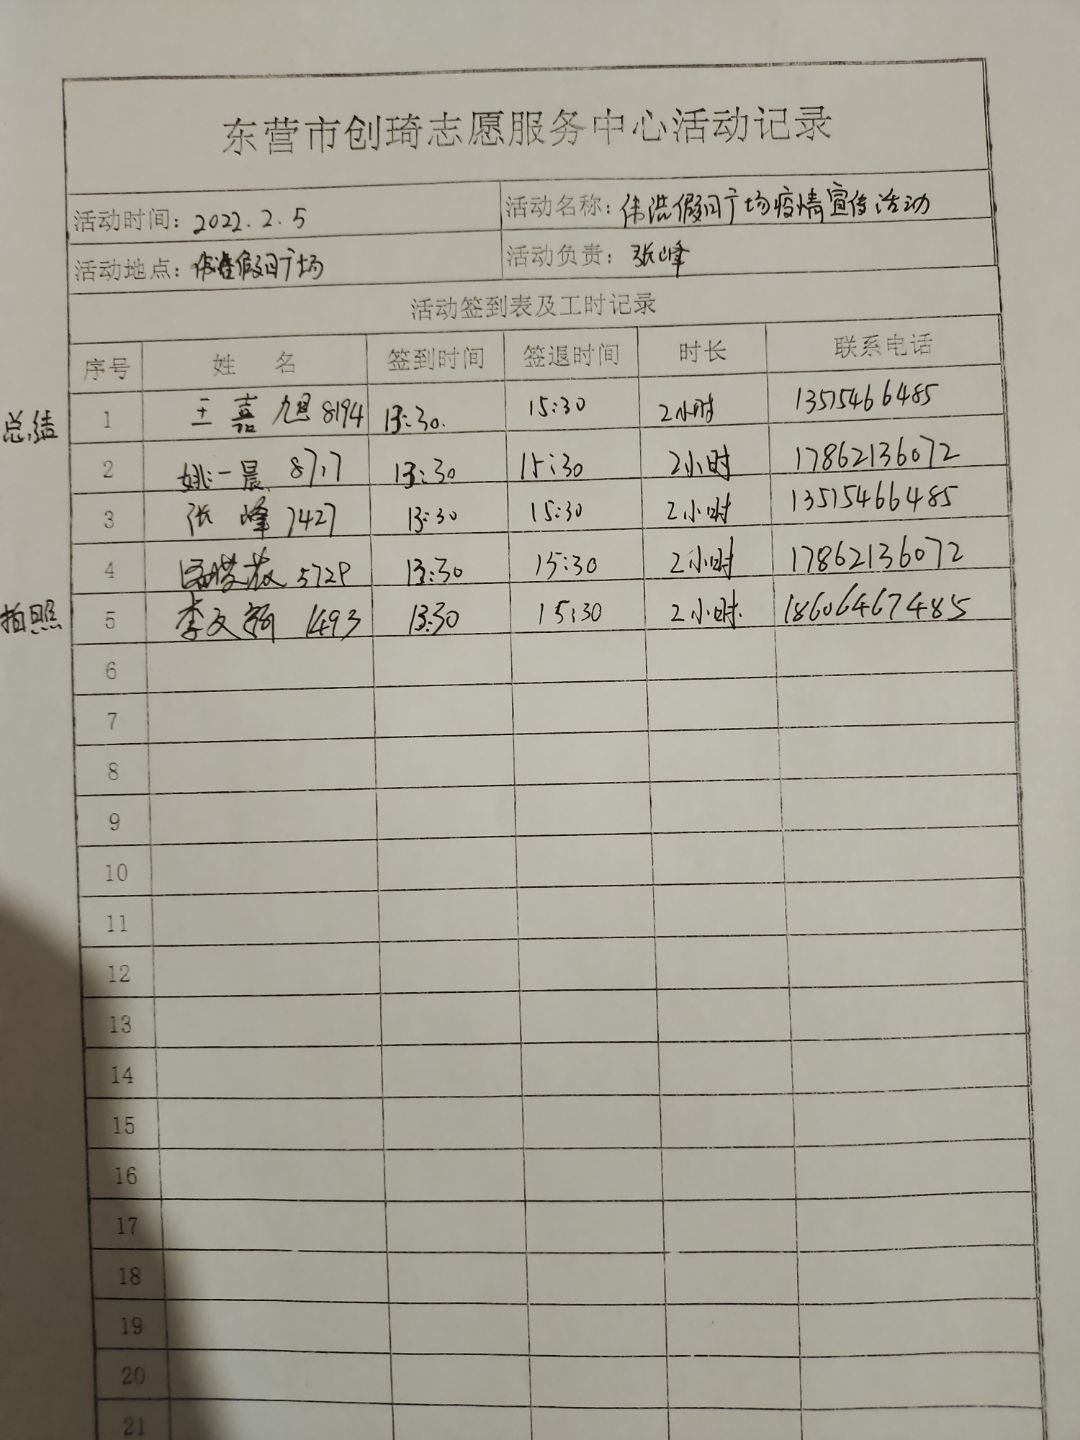 东营市创琦志愿服务中心活动记录
活动时间: 2022.2.5 活动名称: 伟浩假日广场疫情宣传活动
活动地点: 伟浩假日广场 活动负责: 张峰
活动签到表及工时记录
序号 姓 名 签到时间 签退时间 时长 联系电话
总结 1 王嘉旭 8194 13:30. 15:30 2小时 13515466485
2 姚一晨 8717 13:30 15:30 2小时 17862136072
3 张峰 7427 13:30 15:30 2小时 13515466485
4 5729 13:30 15:30 2小时 17862136072
拍照 5 李文 1493 13:30 15:30 2小时. 18606467485
6
7
8
9
10
11
12
13
14
15
16
17
18
19
20
21